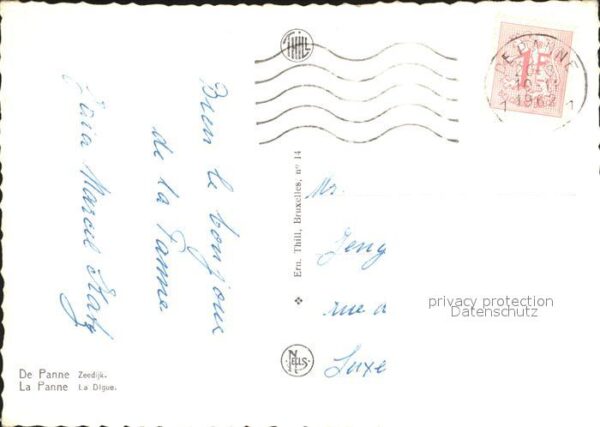 THILL
DE PANNE
1962
1F
Bien le bonjour
de la Panne
Marcel
Mr.
Jeng
rue d
Luxe
privacy protection
Datenschutz
Ern. Thill, Bruxelles, n° 14
NELS
De Panne Zeedijk.
La Panne La Digue.